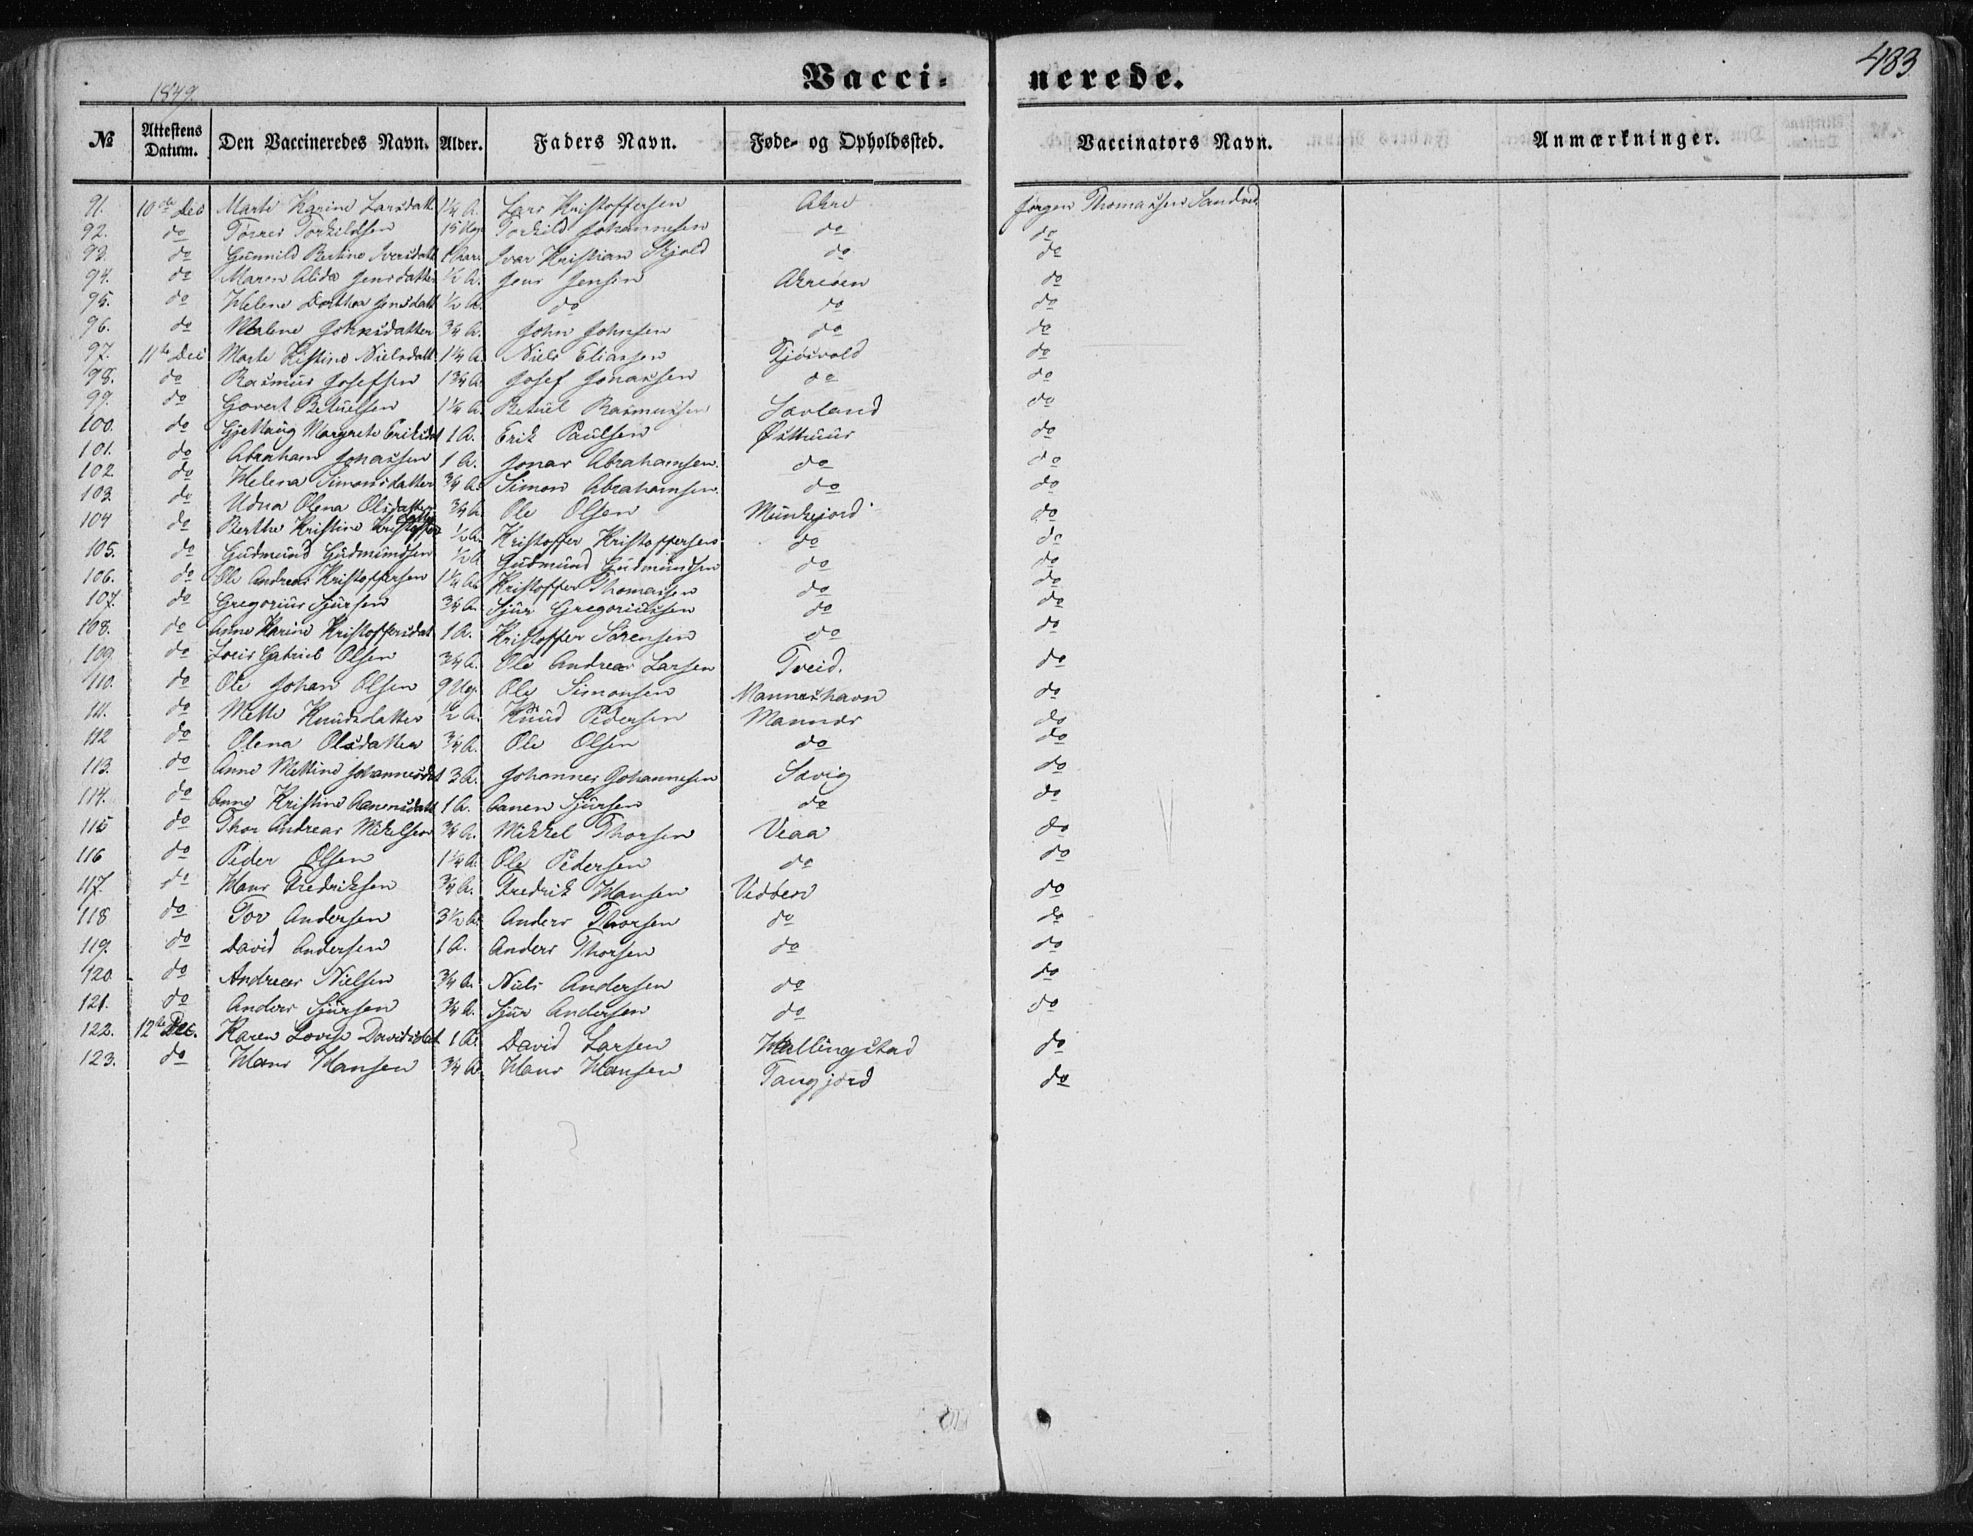 483
1849.
Vacci- nerede.
No Attestens Datum. Den Vaccineredes Navn. Alder. Faders Navn. Føde- og Opholdssted. Vaccinators Navn. Anmærkninger.
91. 10de Dec Marte Karine Larsdatt 1¼ A. Lars Kristoffersen Akre Jørgen Thomassen Sandved
92. do Torres Torkildsen 15 Uger Torkild Johannesen do do
93. do Gunnild Bertine Iversdatt 1 Aar. Ivar Kristian Skjold do do
94. do Maren Alida Jensdatter ½ A. Jens Jensen Akreøen do
95. do Helene Dorthea Jensdatt ½ A. do do do
96. do Malene Johnsdatter ¾ A. John Johnsen do do
97. 11te Dec Marte Kistine Nielsdatt 1¼ A. Niels Eliassen Tjøsvold do
98. do Rasmus Josefsen 1¾ A. Josef Jonassen do do
99. do Govert Betuelsen 1¼ A. Betuel Rasmussen Søvland do
100. do Margrete Eriksdat 1 A. Erik Paulsen Østhuus do
101. do Abraham Jonassen 1 A. Jonas Abrahamsen. do do
102 do Helena Simonsdatter ¾ A. Simon Abrahamsen. do do
103. do Udna Olena Olsdatter ¾ A. Ole Olsen Munkejord do
104 do Berthe Kristine Kristoffersdatter ½ A. Kristoffer Kristoffersen do do
105. do Gudmund Gudmundsen ½ A Gudmund Gudmundsen do do
106. do Ole Andreas Kristoffersen 1¼ A. Kristoffer Thomassen do do
107. do Gregorius Sjursen ¾ A. Sjur Gregoriussen do do
108. do Anne Karine Kristoffersdat 1 A. Kristoffer Sørensen do do
109. do Loris Gabriel Olsen ¾ A. Ole Andreas Larsen Tveid. do
110. do Ole Johan Olsen 9 Ug. Ole Simonsen Manneshavn do
111. do Mette Knudsdatter ½ A. Knud Pedersen Mannes do
112 do Olena Olsdatter ¾ A. Ole Olsen do do
113. do Anne Mettine Johannesdat 3 A. Johannes Johannesen Søvig do
114. do Anne Kristine Aanensdatt 1 A. Aanen Sjursen do do
115 do Thor Andreas Mikelsen ¾ A. Mikkel Thorsen Veaa do
116 do Peder Olsen 1¼ A. Ole Pedersen do do
117. do Hans Fredriksen ¾ A. Fredrik Hansen Vedøen do
118 do Tov Andersen 3½ A. Anders Thorsen do do
119. do David Andersen 1 A. Anders Thorsen do do
120 do Andreas Nielsen ¾ A. Niels Andersen do do
121. do Anders Sjursen ¾ A. Sjur Andersen do do
122. 12te Dec. Karen Lovise Davidsdat 1 A. David Larsen Hallingstad do
123. do Hans Hansen ¾ A. Hans Hansen Tangjerd do